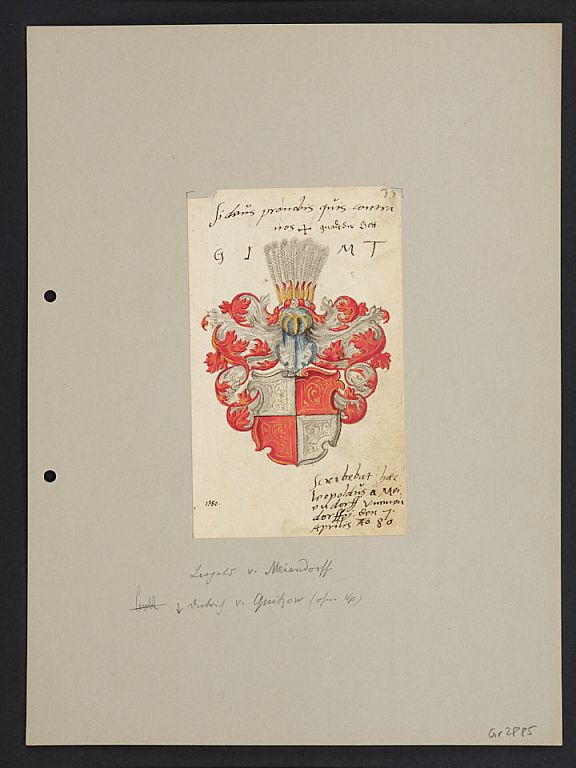 32
Si deus pro nobis quis contra
nos + gnad dir Gott
G I M T
1580.
Scribebat hæc
Leopoldus a Mei
endorff
dorffij den 7
Aprilis Ao 80
Leopold v. Meiendorff
↓ Dietrich v. Quitzow (ohne Wp)
Gr 2885